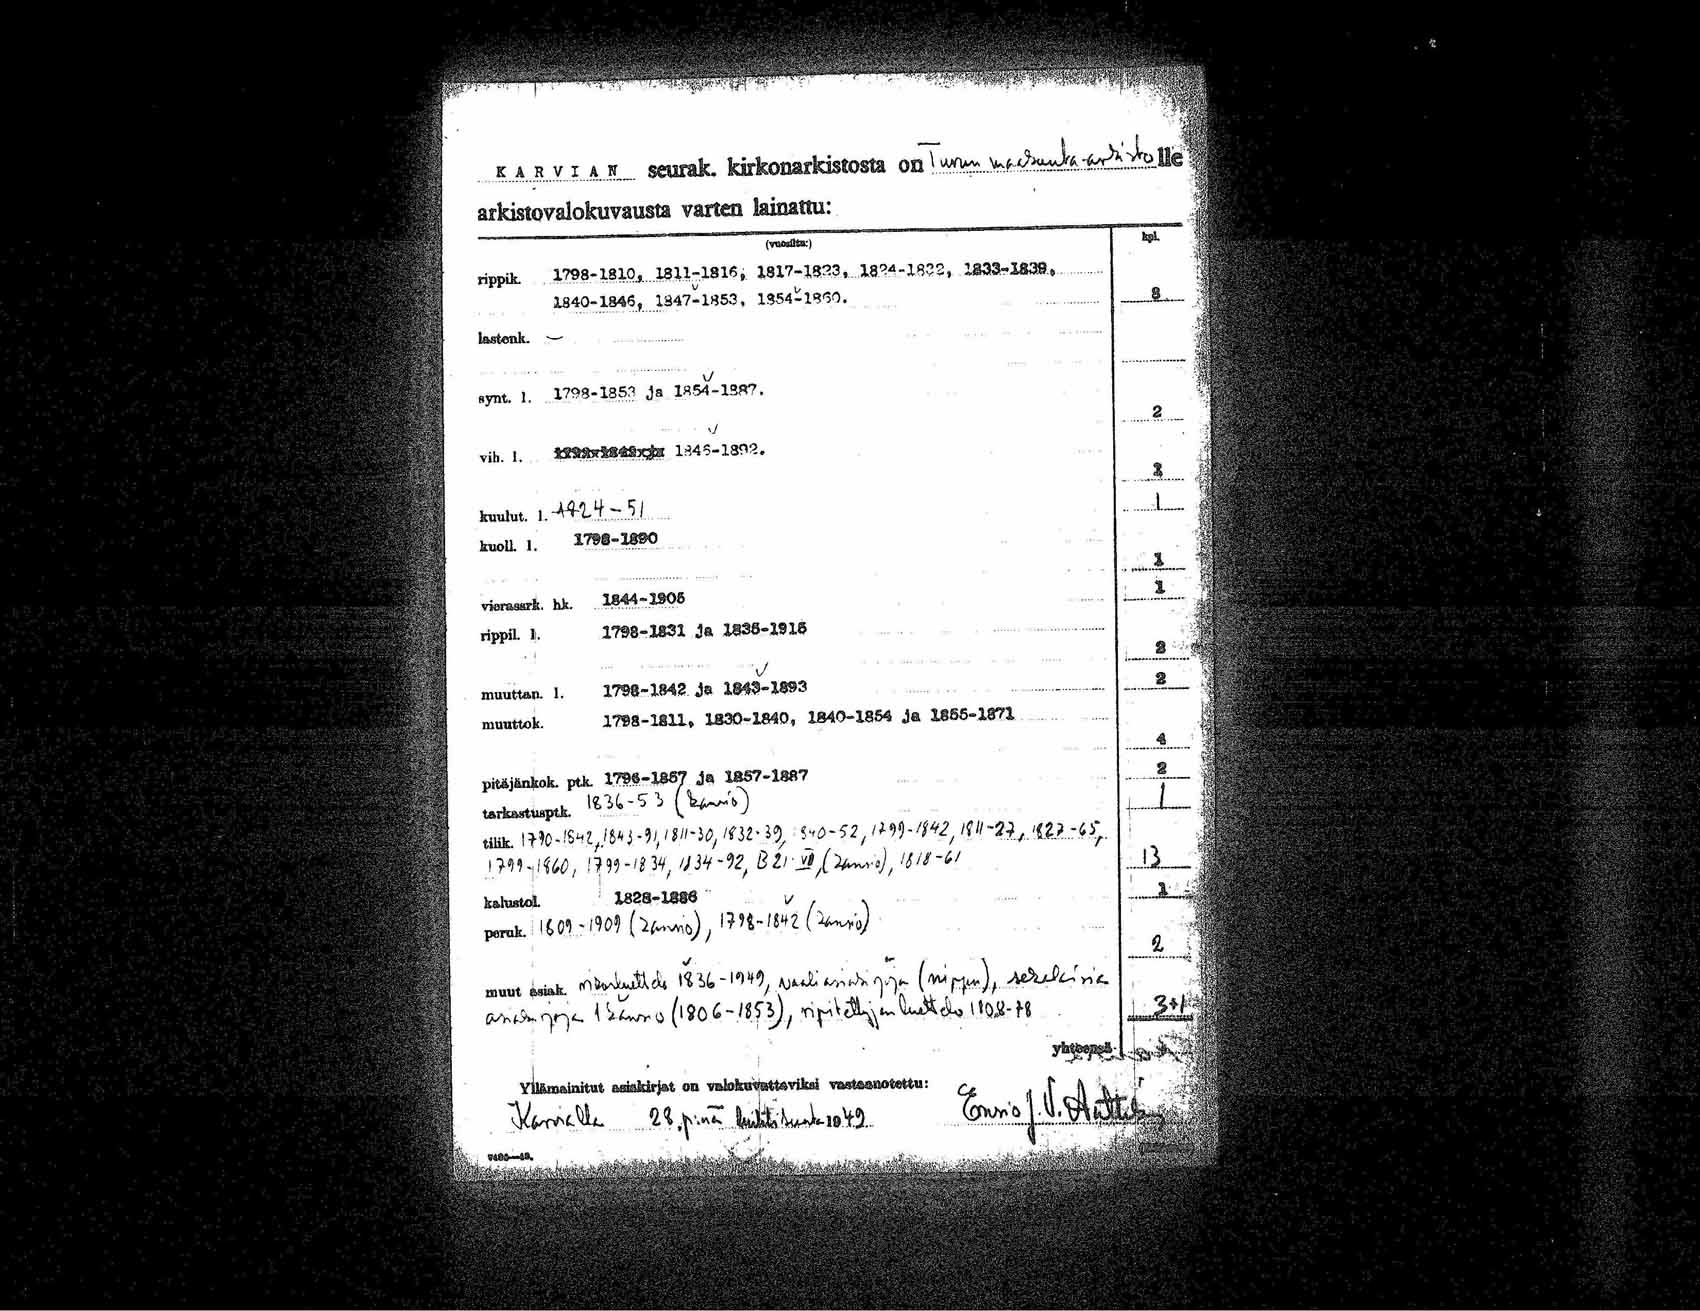 KARVIAN seurak. kirkonarkistosta on Turun maakunta-arkistolle
arkistovalokuvausta varten lainattu:
(vuosilta:) kpl.
rippik. 1798-1810, 1811-1816, 1817-1823, 1824-1832, 1833-1839,
1840-1846, 1847-1853, 1854-1860. 8
lastenk. —
synt. l. 1798-1853 ja 1854-1887.
2
vih. l. 1846-1892.
kuulut. l. 1824-51 1
kuoll. l. 1798-1890
1
vierassrk. hk. 1844-1905 1
rippil. l. 1798-1831 ja 1835-1915
2
muuttan. l. 1798-1842 ja 1843-1893 2
muuttok. 1798-1811, 1830-1840, 1840-1854 ja 1855-1871
4
pitäjänkok. ptk. 1796-1857 ja 1857-1887 2
tarkastusptk. 1836-53 (kansio) 1
tilik. 1790-1842, 1843-91, 1811-30, 1832-39, 1840-52, 1799-1842, 1811-27, 1827-65,
1799-1860, 1799-1834, 1834-92, B 21 VII, (kansio), 1818-61 13
kalustol. 1828-1886 1
peruk. 1809-1909 (kansio), 1798-1842 (kansio)
2
muut asiak. 1836-1949, vaaliasiakirjoja (nippu), sekalaisia
asiakirjoja 1 kansio (1806-1853), ripitettyjen luettelo 1808-78 3+1
yhteensä
Yllämainitut asiakirjat on valokuvattaviksi vastaanotettu:
Karvialla 28. p:nä huhtikuuta 1949 Ensio J. V.